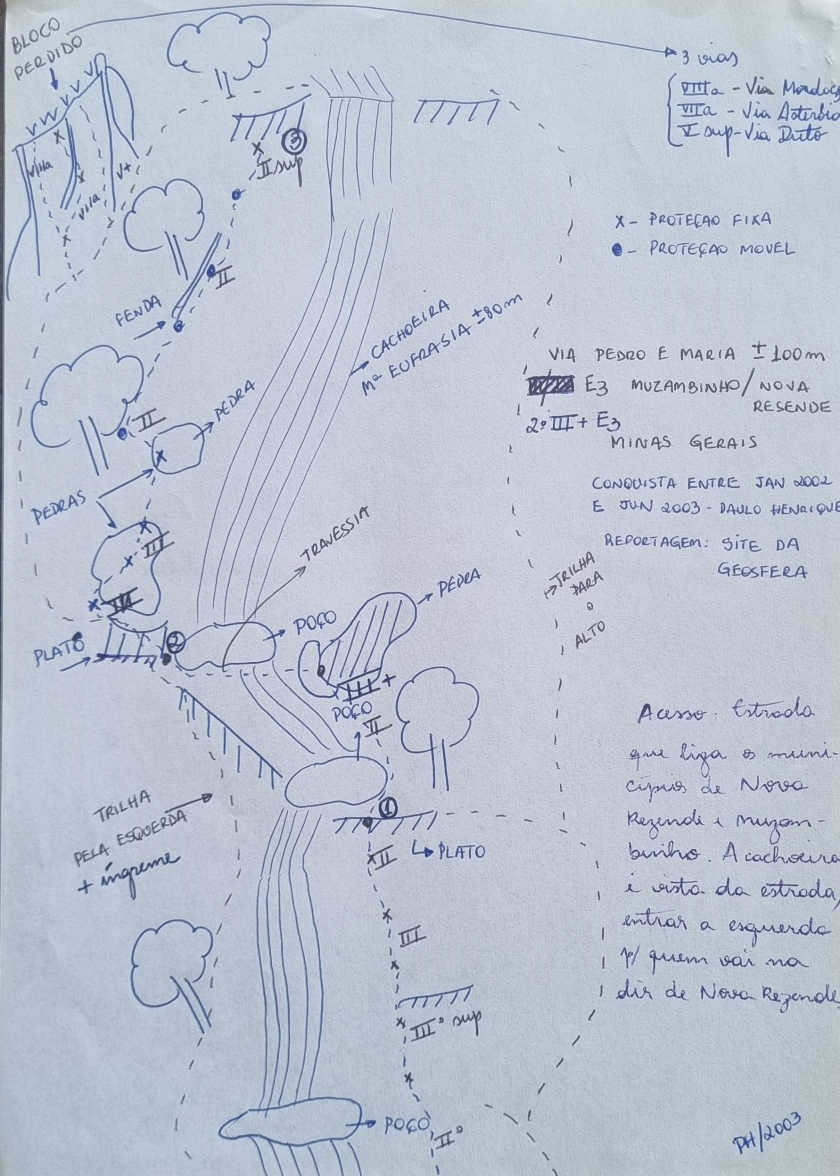 BLOCO
PERDIDO
3 vias
VIIIa - Via Mordoç
VIIa - Via Asterbio
V sup - Via Duto
VIIIa
VIIa
V+
3
II sup
X - PROTEÇAO FIXA
● - PROTEÇAO MOVEL
II
FENDA
CACHOEIRA
Mª EUFRASIA ±80m
VIA PEDRO E MARIA ± 100m
E3 MUZAMBINHO/NOVA
RESENDE
2º III+ E3
MINAS GERAIS
II
PEDRA
PEDRAS
CONQUISTA ENTRE JAN 2002
E JUN 2003 - PAULO HENRIQUE
REPORTAGEM: SITE DA
GEOSFERA
III
TRAVESSIA
TRILHA
PARA
O
ALTO
PEDRA
POÇO
PLATÔ
2
+
POÇO
II
Acesso: Estrada
que liga os muni-
cípios de Nova
Rezende e Muzam-
binho. A cachoeira
é vista da estrada,
entrar a esquerda
p/ quem vai na
dir de Nova Rezende
TRILHA
PELA ESQUERDA
+ íngreme
1
II
PLATO
III
IIIº sup
POÇO
IIº
PH/2003